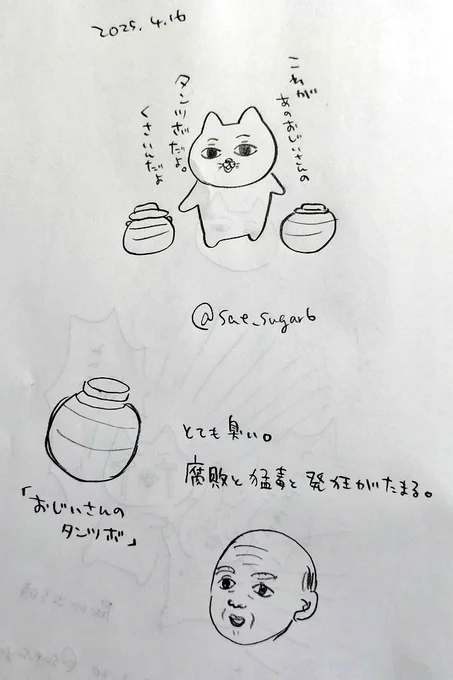 2025.4.16
これが
あのおじいさんの
タンツボだよ。
くさいんだよ
@sae_sugar6
とても臭い。
腐敗と猛毒と発狂がたまる。
「おじいさんの
タンツボ」